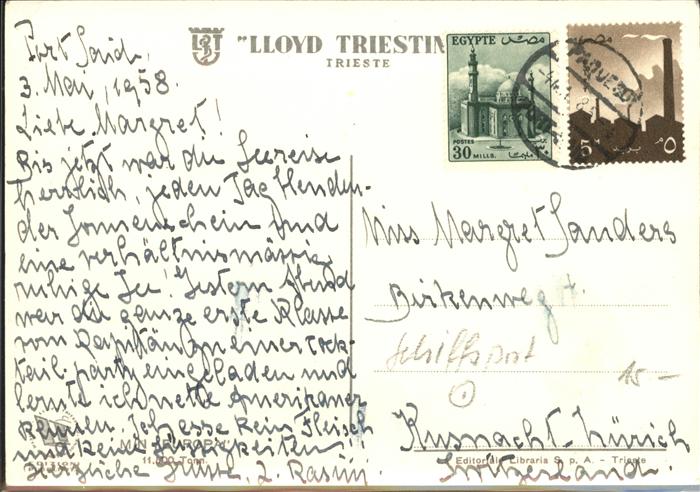 "LLOYD TRIESTIN
TRIESTE
Port Said,
3. Mai, 1958.
Liebe Margret!
Bis jetzt war die Seereise
herrlich, jeden Tag blenden-
der Sonnenschein und
eine verhältnismässig
ruhige See! Gestern Abend
war die ganze erste Klasse
vom Kapitän zu einer Cock-
tail-party eingeladen und
lernte ich nette Amerikaner
kennen. Ich esse kein Fleisch
und keine Süssigkeiten!!
Herzliche Grüsse,
M/N
11.500 Tonn.
EGYPTE
مصر
POSTES
30 MILLS.
مصر
5
٥
PAQUEBOT
Miss Margret Sanders
Birkenweg
Schiffspost
15.-
Kusnacht-Zürich
Editoriale Libraria S. p. A. - Trieste
Switzerland.